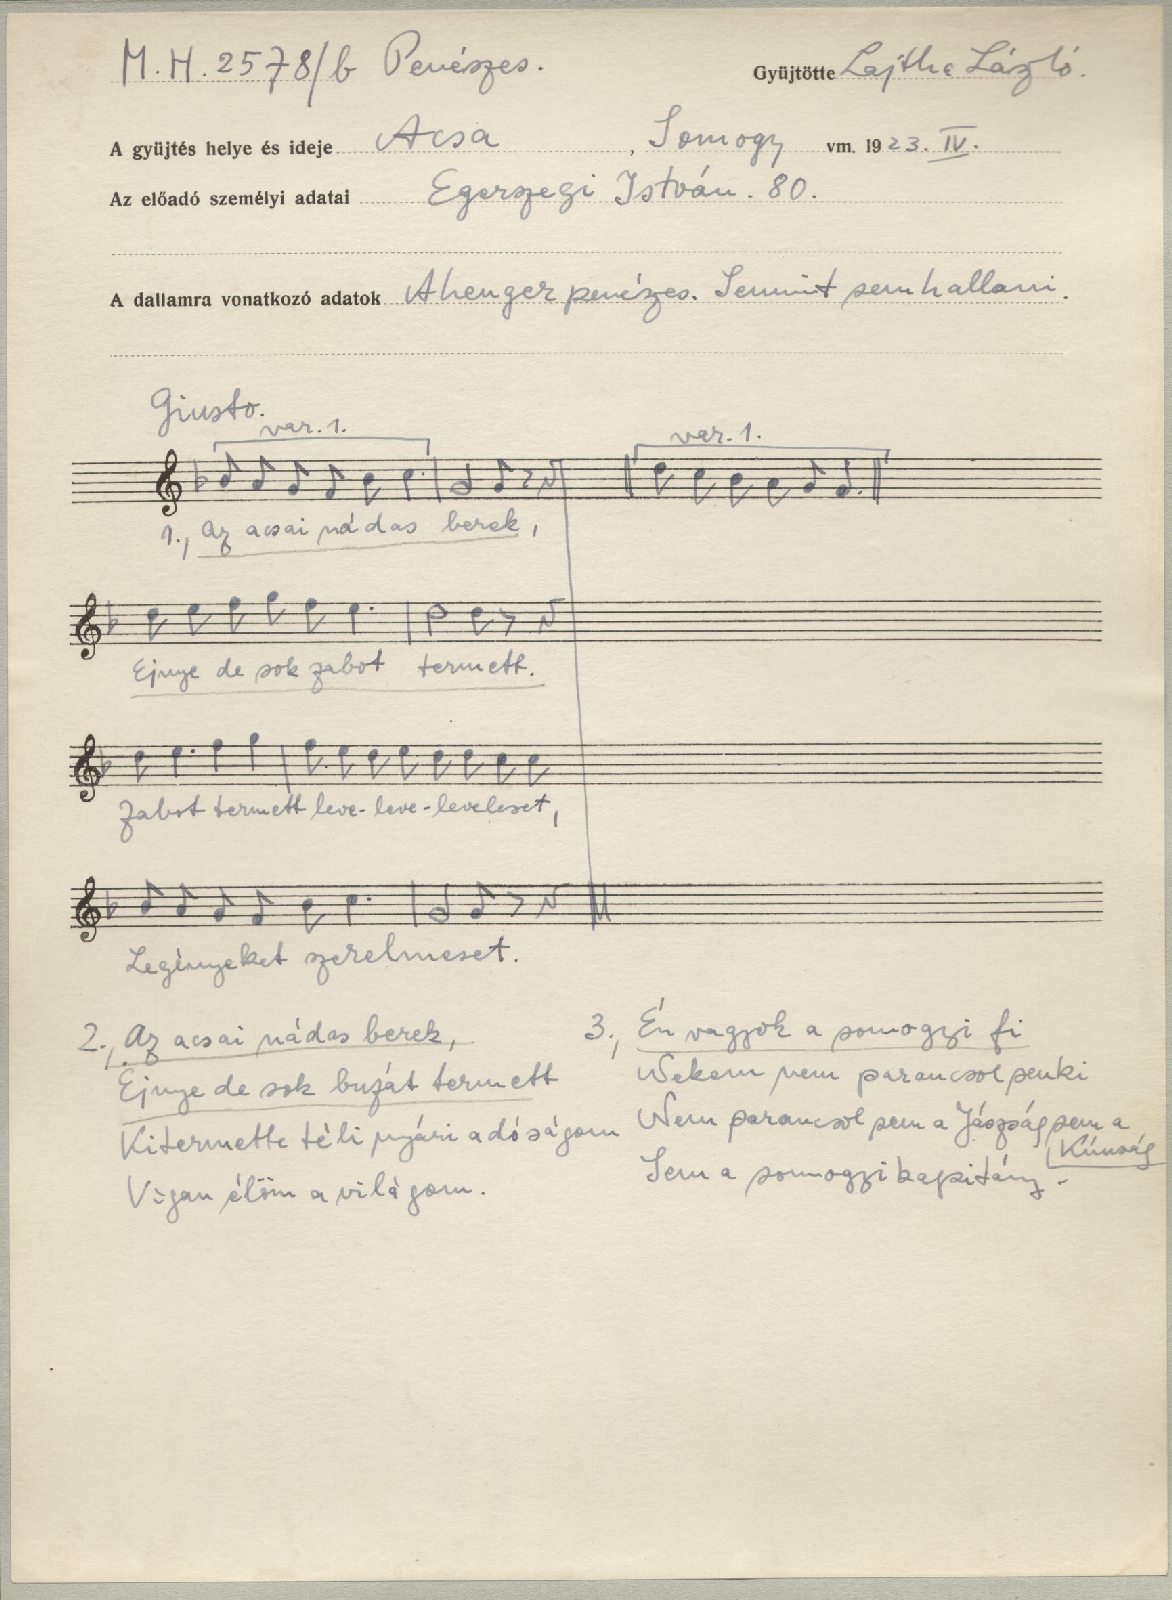 M. H. 2578/b Penészes.
Gyüjtötte Lajtha László.
A gyüjtés helye és ideje Acsa, Somogy vm. 1923. IV.
Az előadó személyi adatai Egerszegi István. 80.
A dallamra vonatkozó adatok A henger penészes. Semmit sem hallani.
Giusto.
var. 1. var. 1.
1., Az acsai nádas berek,
Ejnye de sok zabot termett.
Zabot termett leve-leve-leveleset,
Legényeket szerelmeset.
2., Az acsai nádas berek,
Ejnye de sok buzát termett
Kitermette téli nyári adóságom
Vigan élöm a világom.
3., Én vagyok a somogyi fi
Nekem nem parancsol senki
Nem parancsol sem a Jászság sem a
Kúnság
Sem a somogyi kapitány.